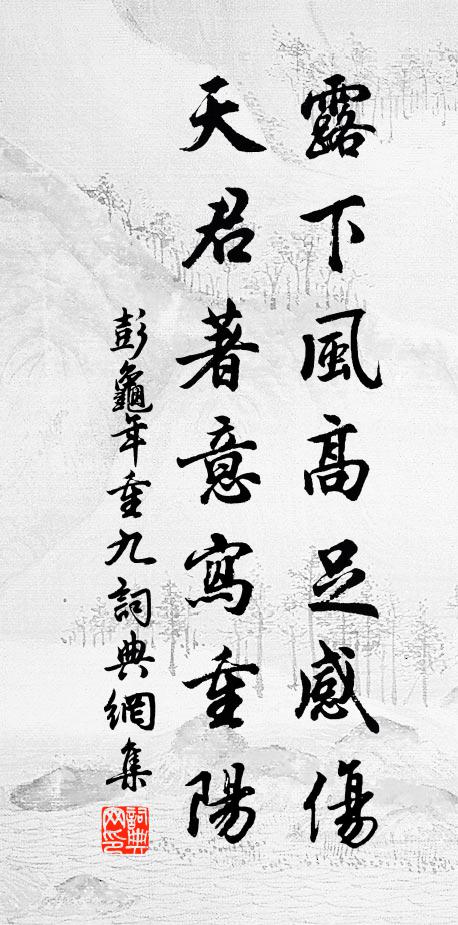 露下風高足感傷
天君著意寫重陽
彭龜年重九詞典網集
詞典網印